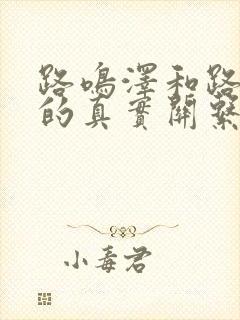 路鳴澤和路
的真實關繫
小毒君